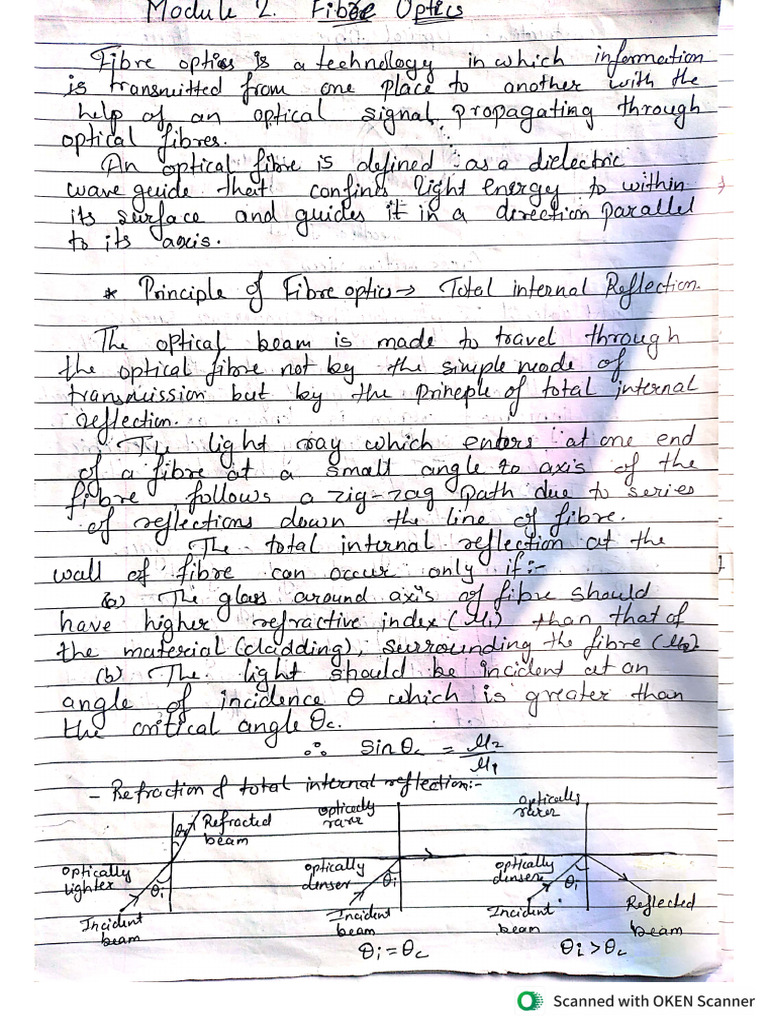 Module 2. Fibre Optics
Fibre optics is a technology in which information
is transmitted from one place to another with the
help of an optical signal propagating through
optical fibres.
An optical fibre is defined as a dielectric
wave guide that confines light energy to within
its surface and guides it in a direction parallel
to its axis.
* Principle of Fibre optics → Total internal Reflection.
The optical beam is made to travel through
the optical fibre not by the simple mode of
transmission but by the principle of total internal
reflection.
The light ray which enters at one end
of a fibre at a small angle to axis of the
fibre follows a zig-zag path due to series
of reflections down the line of fibre.
The total internal reflection at the
wall of fibre can occur only if:-
(a) The glass around axis of fibre should
have higher refractive index (μ1) than that of
the material (cladding), surrounding the fibre (μ2).
(b) The light should be incident at an
angle of incidence θ which is greater than
the critical angle θc.
∴ sin θc = μ2/μ1
- Refraction & total internal reflection:-
θr Refracted beam
Optically lighter
θi
Incident beam
optically rarer
optically denser
θi
Incident beam
θi = θc
Optically rarer
optically denser
θi
Incident beam
Reflected beam
θi > θc
Scanned with OKEN Scanner